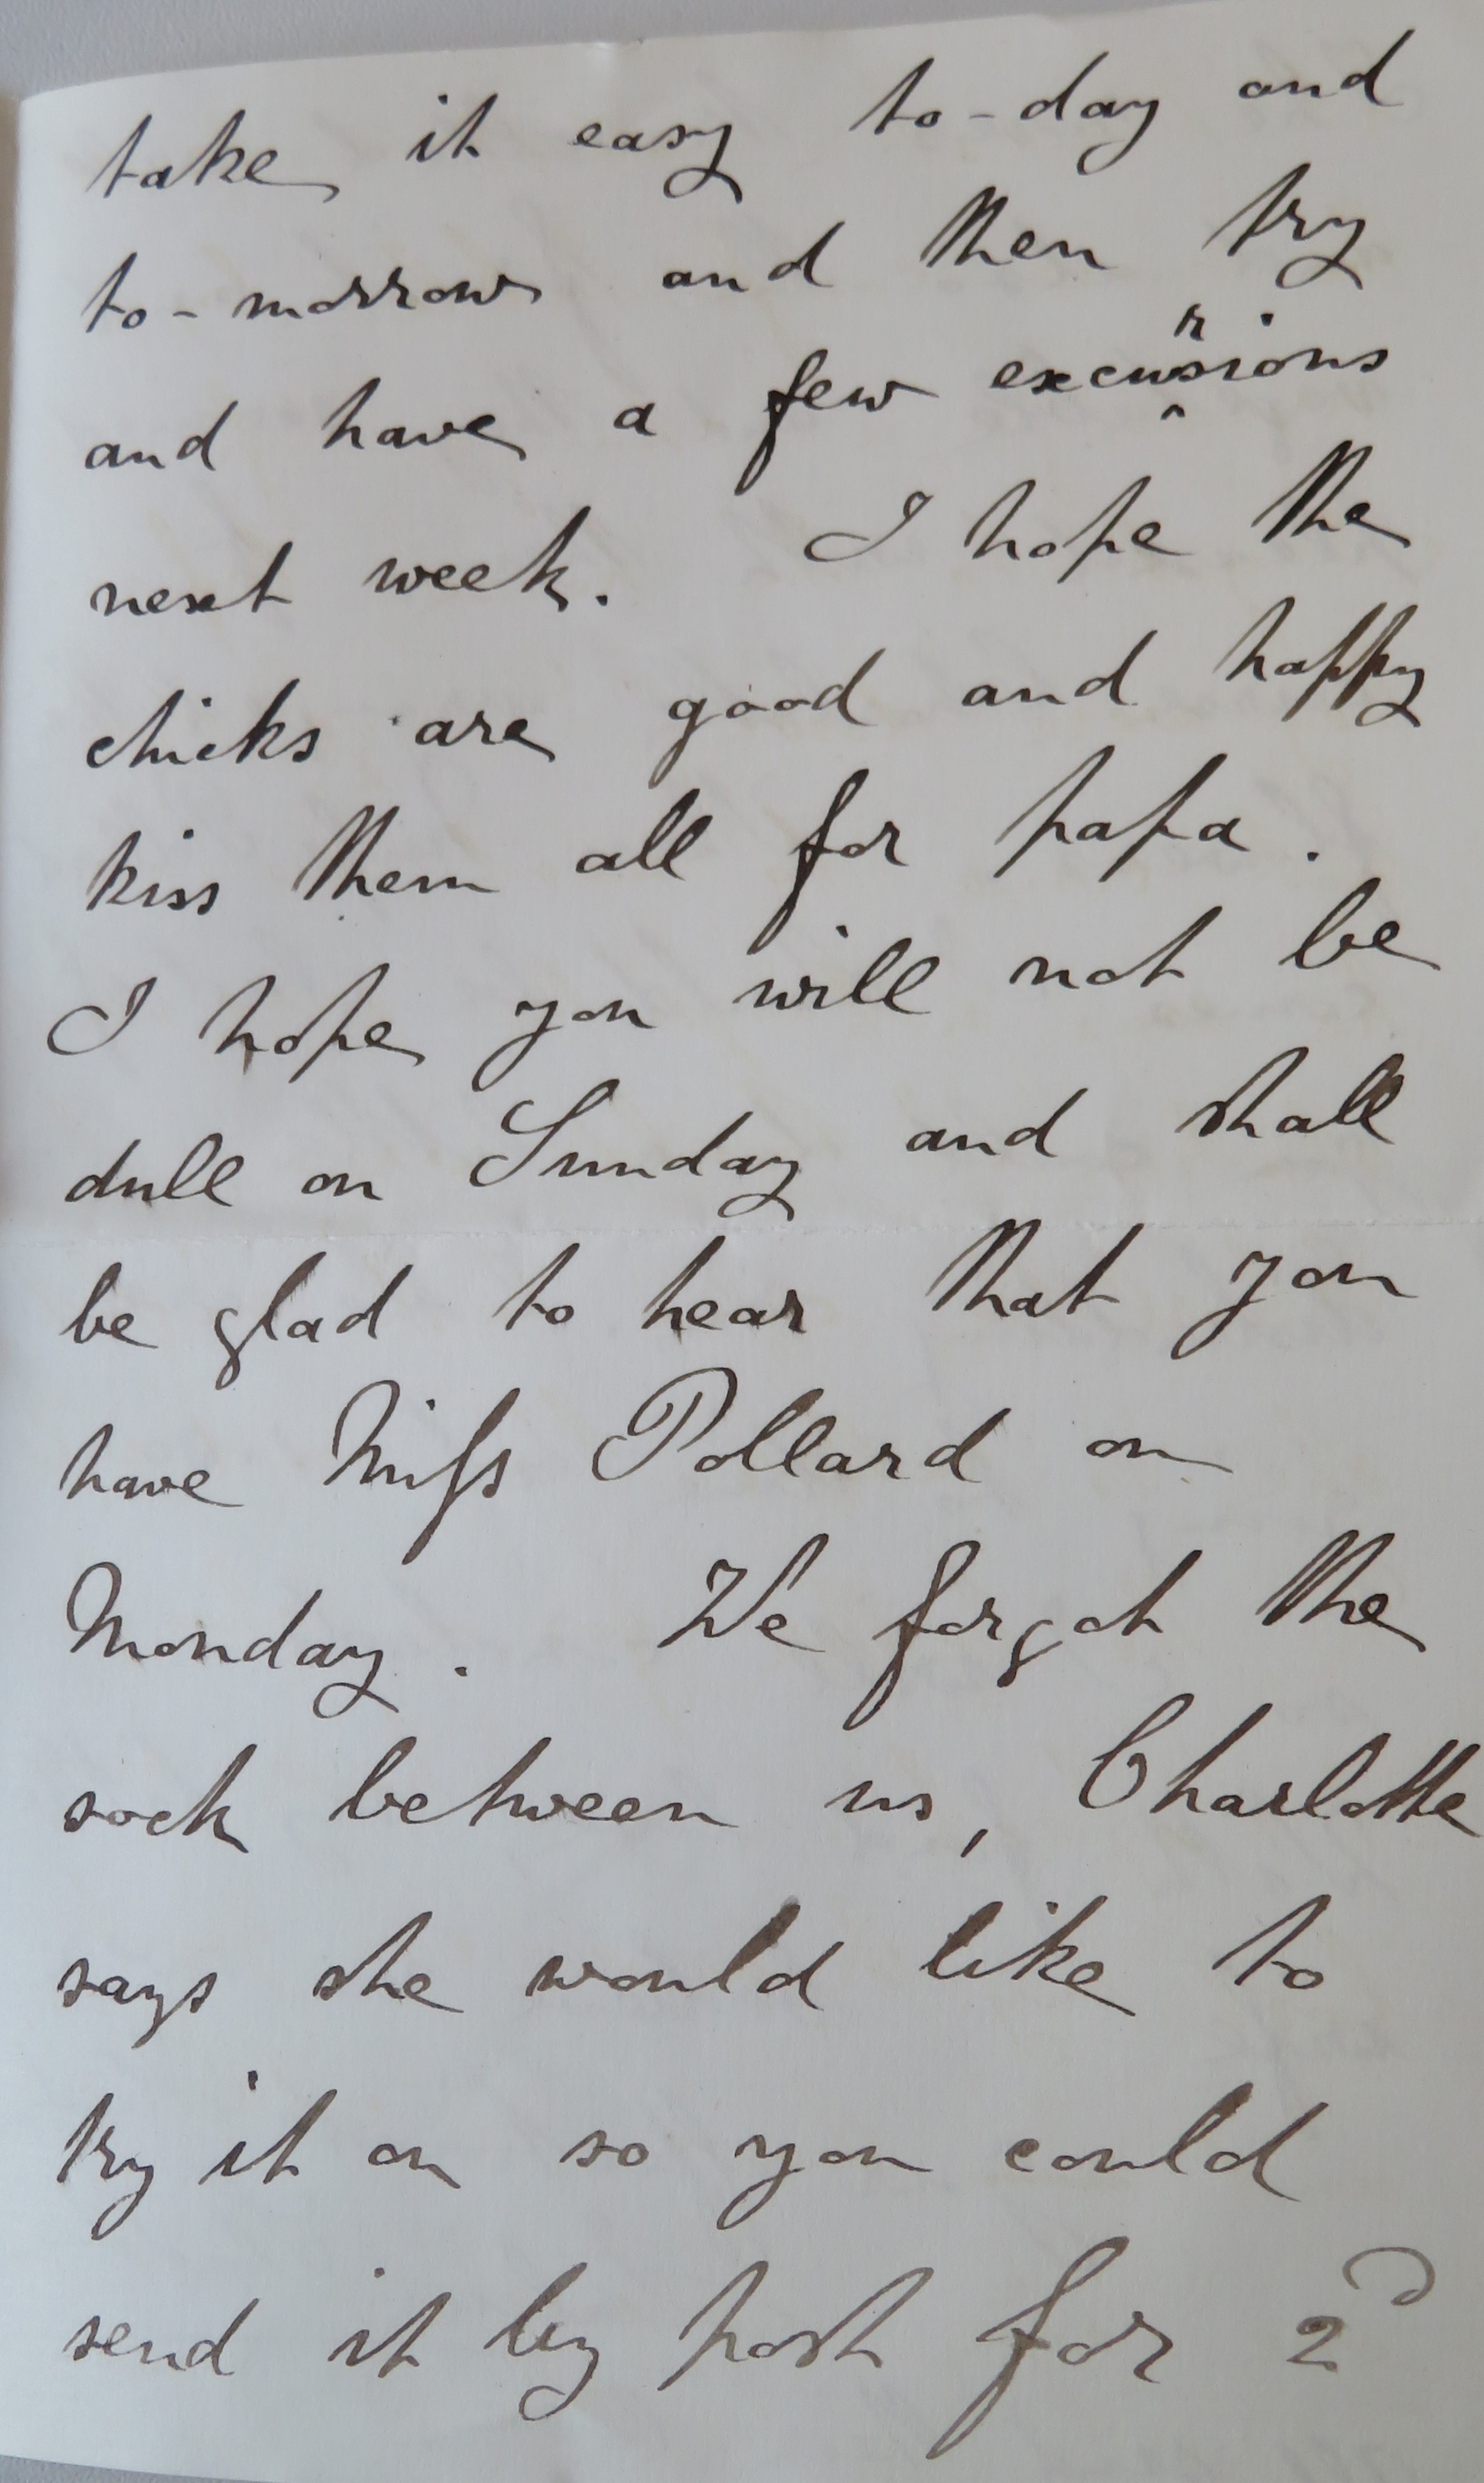 take it easy to-day and
to-morrow and then try
and have a few excursions
next week. I hope the
chicks are good and happy
kiss them all for papa.
I hope you will not be
dull on Sunday and shall
be glad to hear that you
have Miſs Pollard on
Monday. We forgot the
sock between us, Charlotte
says she would like to
try it on so you could
send it by post for 2ᵈ